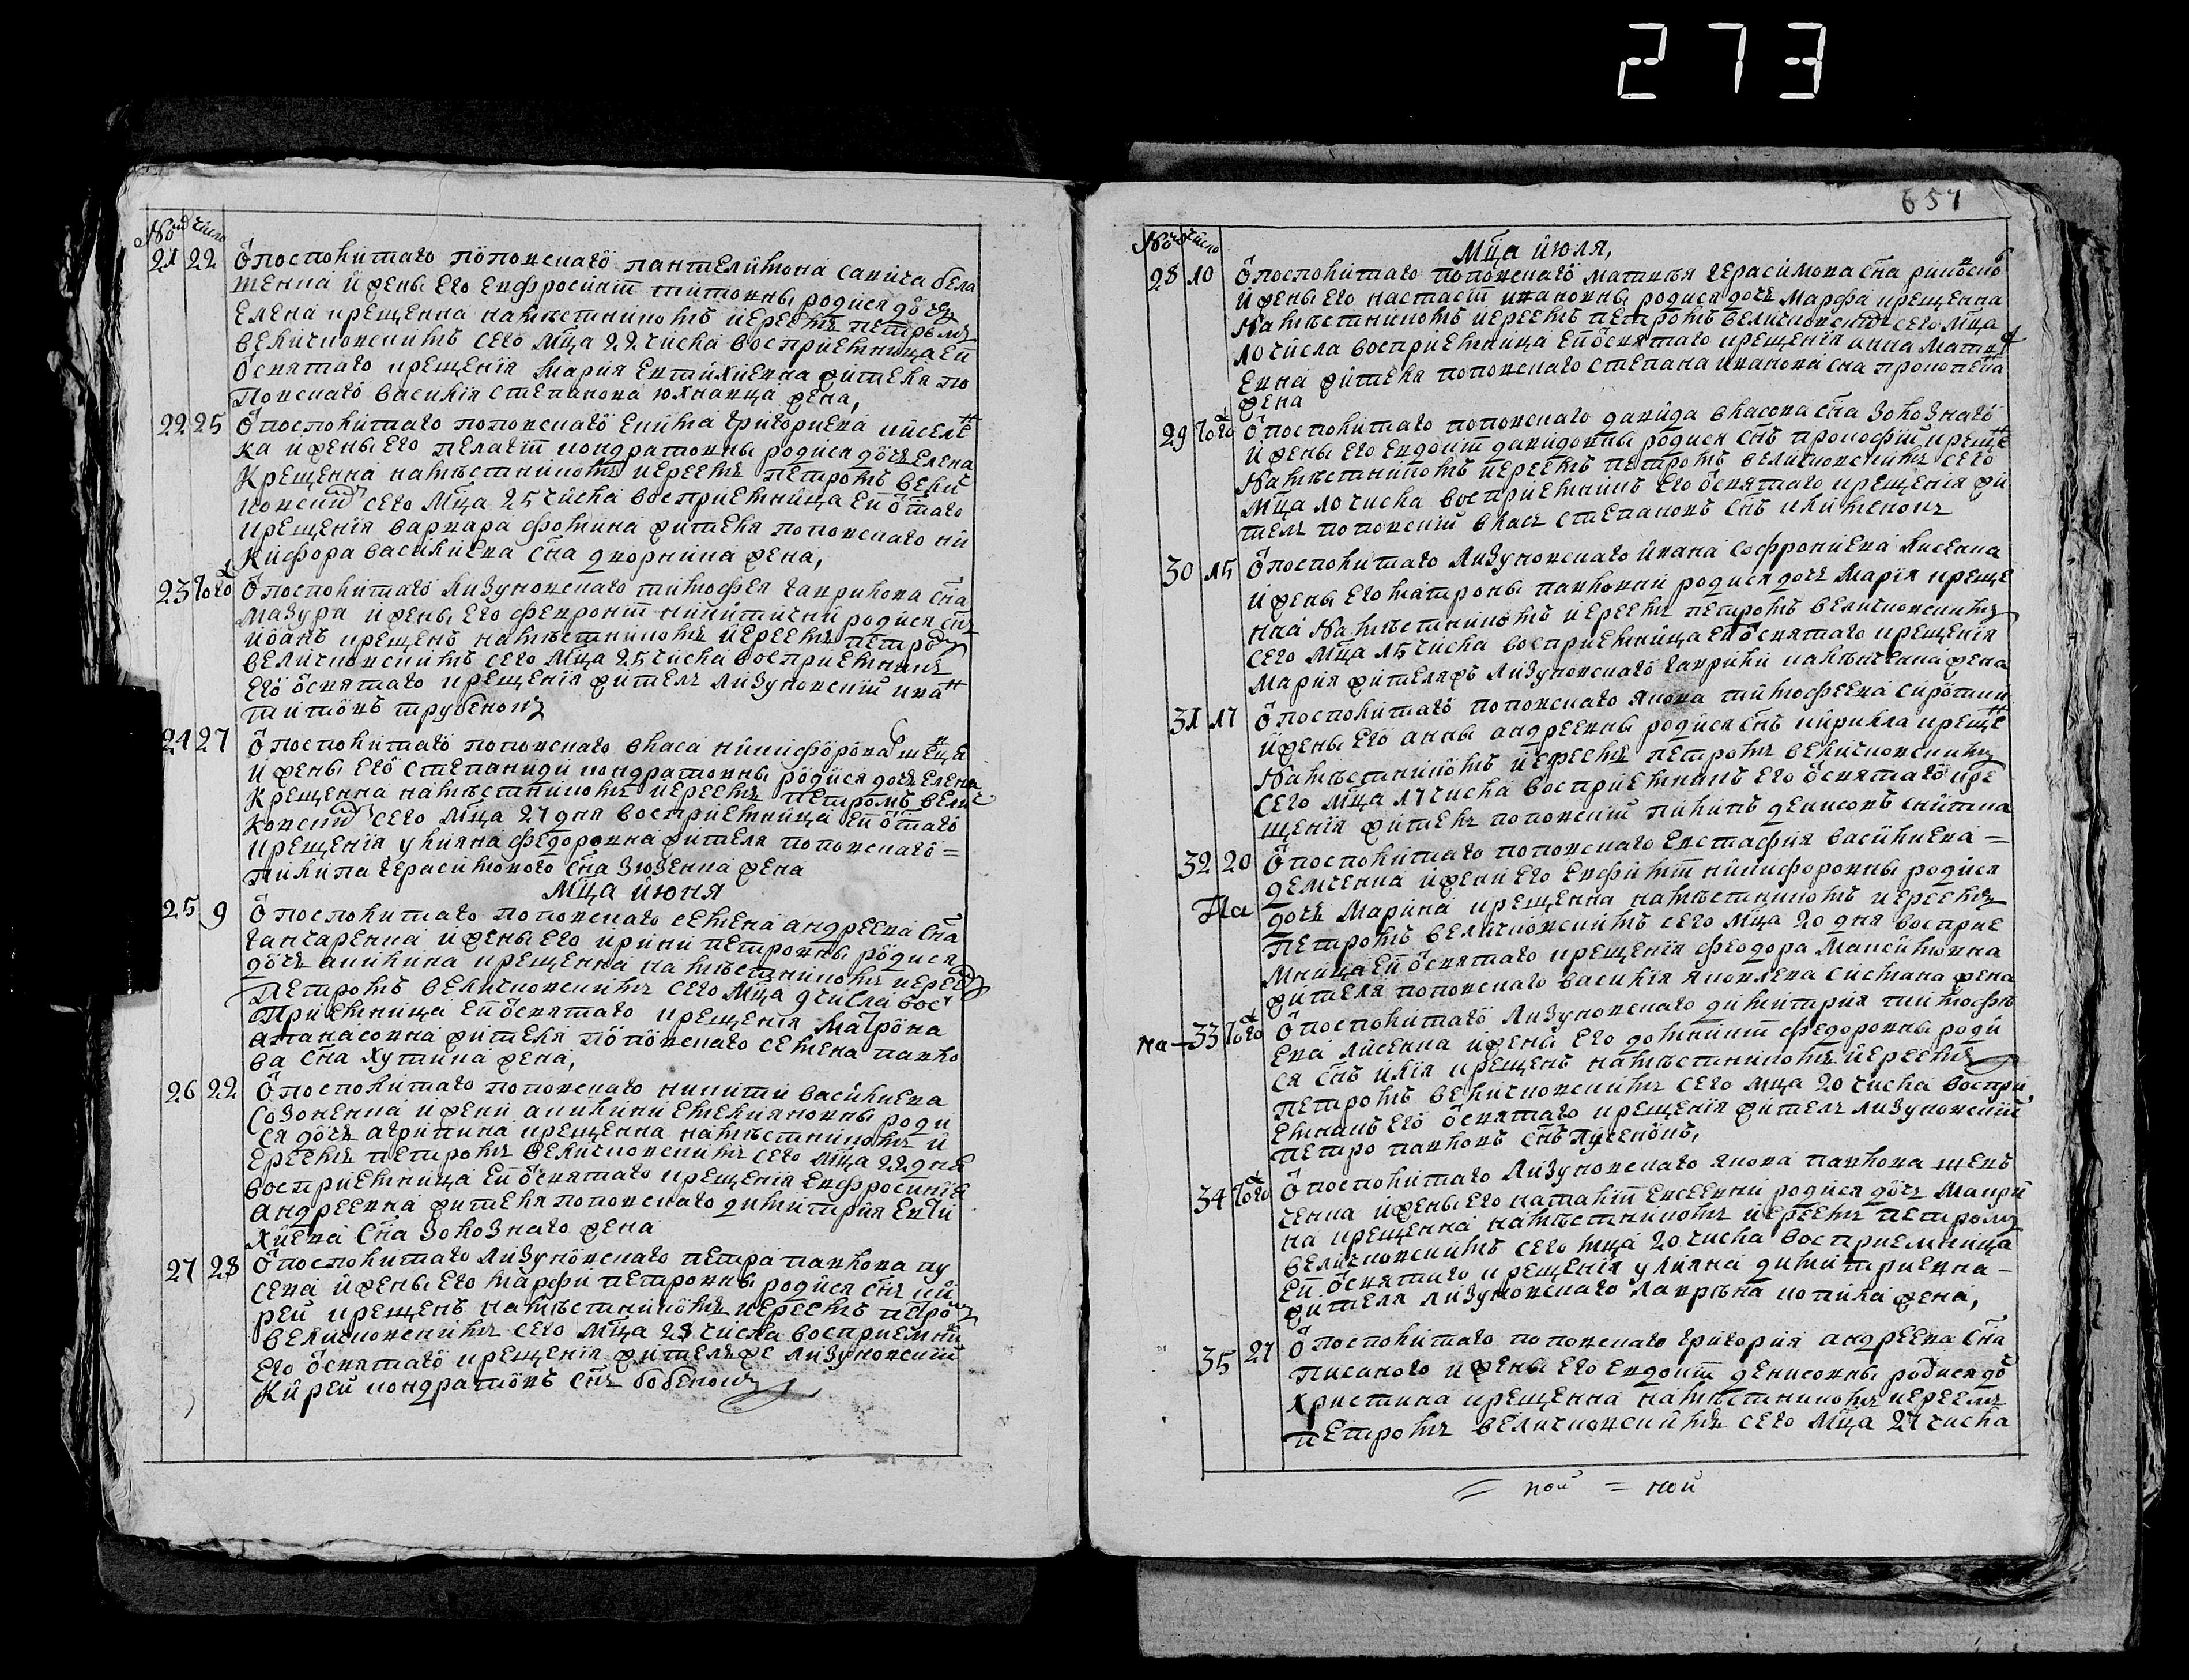 273
657
№ число
21 22 Ѿ посполитаго поповскаго пантелимона савича бѣла
шенка и жены его Ефросиніи титовны родися дочь
Елена крещенна намѣстникомъ иереемъ петромъ
величковскимъ сего Мца 22 числа восприемница ей
ѿ святаго крещенія Мария Евтихиевна жителя по
повскаго василія степанова юхновца жена,
22 25 Ѿ посполитаго поповскаго Екима григориева киселе
ка и жены его пелагіи кондратовны родися дочь Елена
крещенна намѣстникомъ иереемъ петромъ велич
ковским сего Мца 25 числа восприемница ей ѿ стаго
крещенія варвара фомина жителя поповскаго ни
кифора василиева сна дворника жена,
23 того Ѿ посполитаго лизуновскаго тимофея гаврилова сна
мазура и жены его февроніи никитиний родися снъ
иоанъ крещенъ намѣстникомъ иереемъ петром
величковскимъ сего Мца 25 числа восприемникъ
его ѿ святаго крещенія жителъ лизуновскій иван
титовъ трубенокъ
24 27 Ѿ посполитаго поповскаго власа никифорова шевца
и жены его степаниди кондратовны родися дочь Елена
крещенна намѣстникомъ иереемъ петромъ велич
ковским сего Мца 27 дня восприемница ей ѿ стаго
крещенія улияна федоровна жителя поповскаго =
пилипа герасимового сна зюзенка жена
Мца июня
25 9 Ѿ посполитаго поповскаго семена андреева сна
ганчаренка и жены его ирини петровны родися
дочь акилина крещенна намѣстникомъ иереем
петромъ величковскимъ сего Мца 9 числа вос
приемница ей ѿ святаго крещенія Матрона
атанасовна жителя поповскаго семена павло
ва сна хутина жена,
26 22 Ѿ посполитаго поповскаго никити василиева
созоненка и жени акилини Емелияновны роди
ся дочь агрипина крещенна намѣстникомъ и
ереемъ петромъ величковскимъ сего мца 22 дня
восприемница ей ѿ святаго крещенія Ефросинія
андреевна жителя поповскаго димитрія Евти
хиева сна золозного жена
27 28 Ѿ посполитаго лизуновскаго петра павлова лу
сева и жены его марфи петровны родися снъ ки
рей крещенъ намѣстникомъ иереемъ петром
величковскимъ сего Мца 28 числа восприемник
его ѿ святаго крещенія жителъ же лизуновскій
Кирей кондратовъ снъ бобенокъ
№ число
Мца июля,
28 10 Ѿ посполитаго поповскаго матвѣя герасимова сна
и жены его настасіи ивановны родися дочь Марфа крещенна
намѣстникомъ иереемъ петромъ величковским сего Мца
10 числа восприемница ей ѿ святаго крещенія анна матвѣ
евна жителя поповскаго степана иванова сна прокопенка
жена
29 того Ѿ посполитаго поповскаго давида власова сна золозного
и жены его Евдокіи давидовны родися снъ прокофій креще
намѣстникомъ иереемъ петромъ величковскимъ сего
Мца 10 числа восприемникъ его ѿ святаго крещенія жи
телъ поповскій власъ степановъ снъ
30 15 Ѿ посполитаго лизуновскаго ивана софрониева лисенка
и жены его матроны павловни родися дочь Марія креще
нна намѣстникомъ иереемъ петромъ величковскимъ
сего Мца 15 числа восприемница ей ѿ святаго крещенія
Мария жителяжъ лизуновскаго гаврили жена
31 17 Ѿ посполитаго поповскаго якова тимофеева сироти
и жены его анны андреевны родися снъ кирила креще
намѣстникомъ иереемъ петромъ величковскимъ
сего Мца 17 числа восприемникъ его ѿ святаго кре
щенія жителъ поповскій пилипъ денисовъ
32 20 Ѿ посполитаго поповскаго Евстафия василиева =
демченка и жени его Евфиміи никифоровны родися
дочь Марина крещенна намѣстникомъ иереемъ
петромъ величковскимъ сего Мца 20 дня восприе
мница ей ѿ святаго крещенія феодора Максимовна
жителя поповскаго василія яковлева жена
33 того Ѿ посполитаго лизуновскаго димитрия тимофѣ
ева лисенка и жены его домникіи федоровны роди
ся снъ илія крещенъ намѣстникомъ иереемъ
петромъ величковскимъ сего мца 20 числа воспри
емникъ его ѿ святаго крещенія жителъ лизуновскій
петро павловъ снъ лусенокъ,
34 того Ѿ посполитаго лизуновскаго якова павлова шев
ченка и жены его наталіи Евсеевни родися дочь Маври
на крещенна намѣстникомъ иереемъ петромъ
величковскимъ сего мца 20 числа восприемница
ей ѿ святаго крещенія улияна димитриевна =
жителя лизуновскаго лаврѣна жена,
35 27 Ѿ посполитаго поповскаго григория андреева сна
писаного и жены его Евдокіи денисовны родися до
христина крещенна намѣстникомъ иереемъ
петромъ величковскимъ сего Мца 27 числа